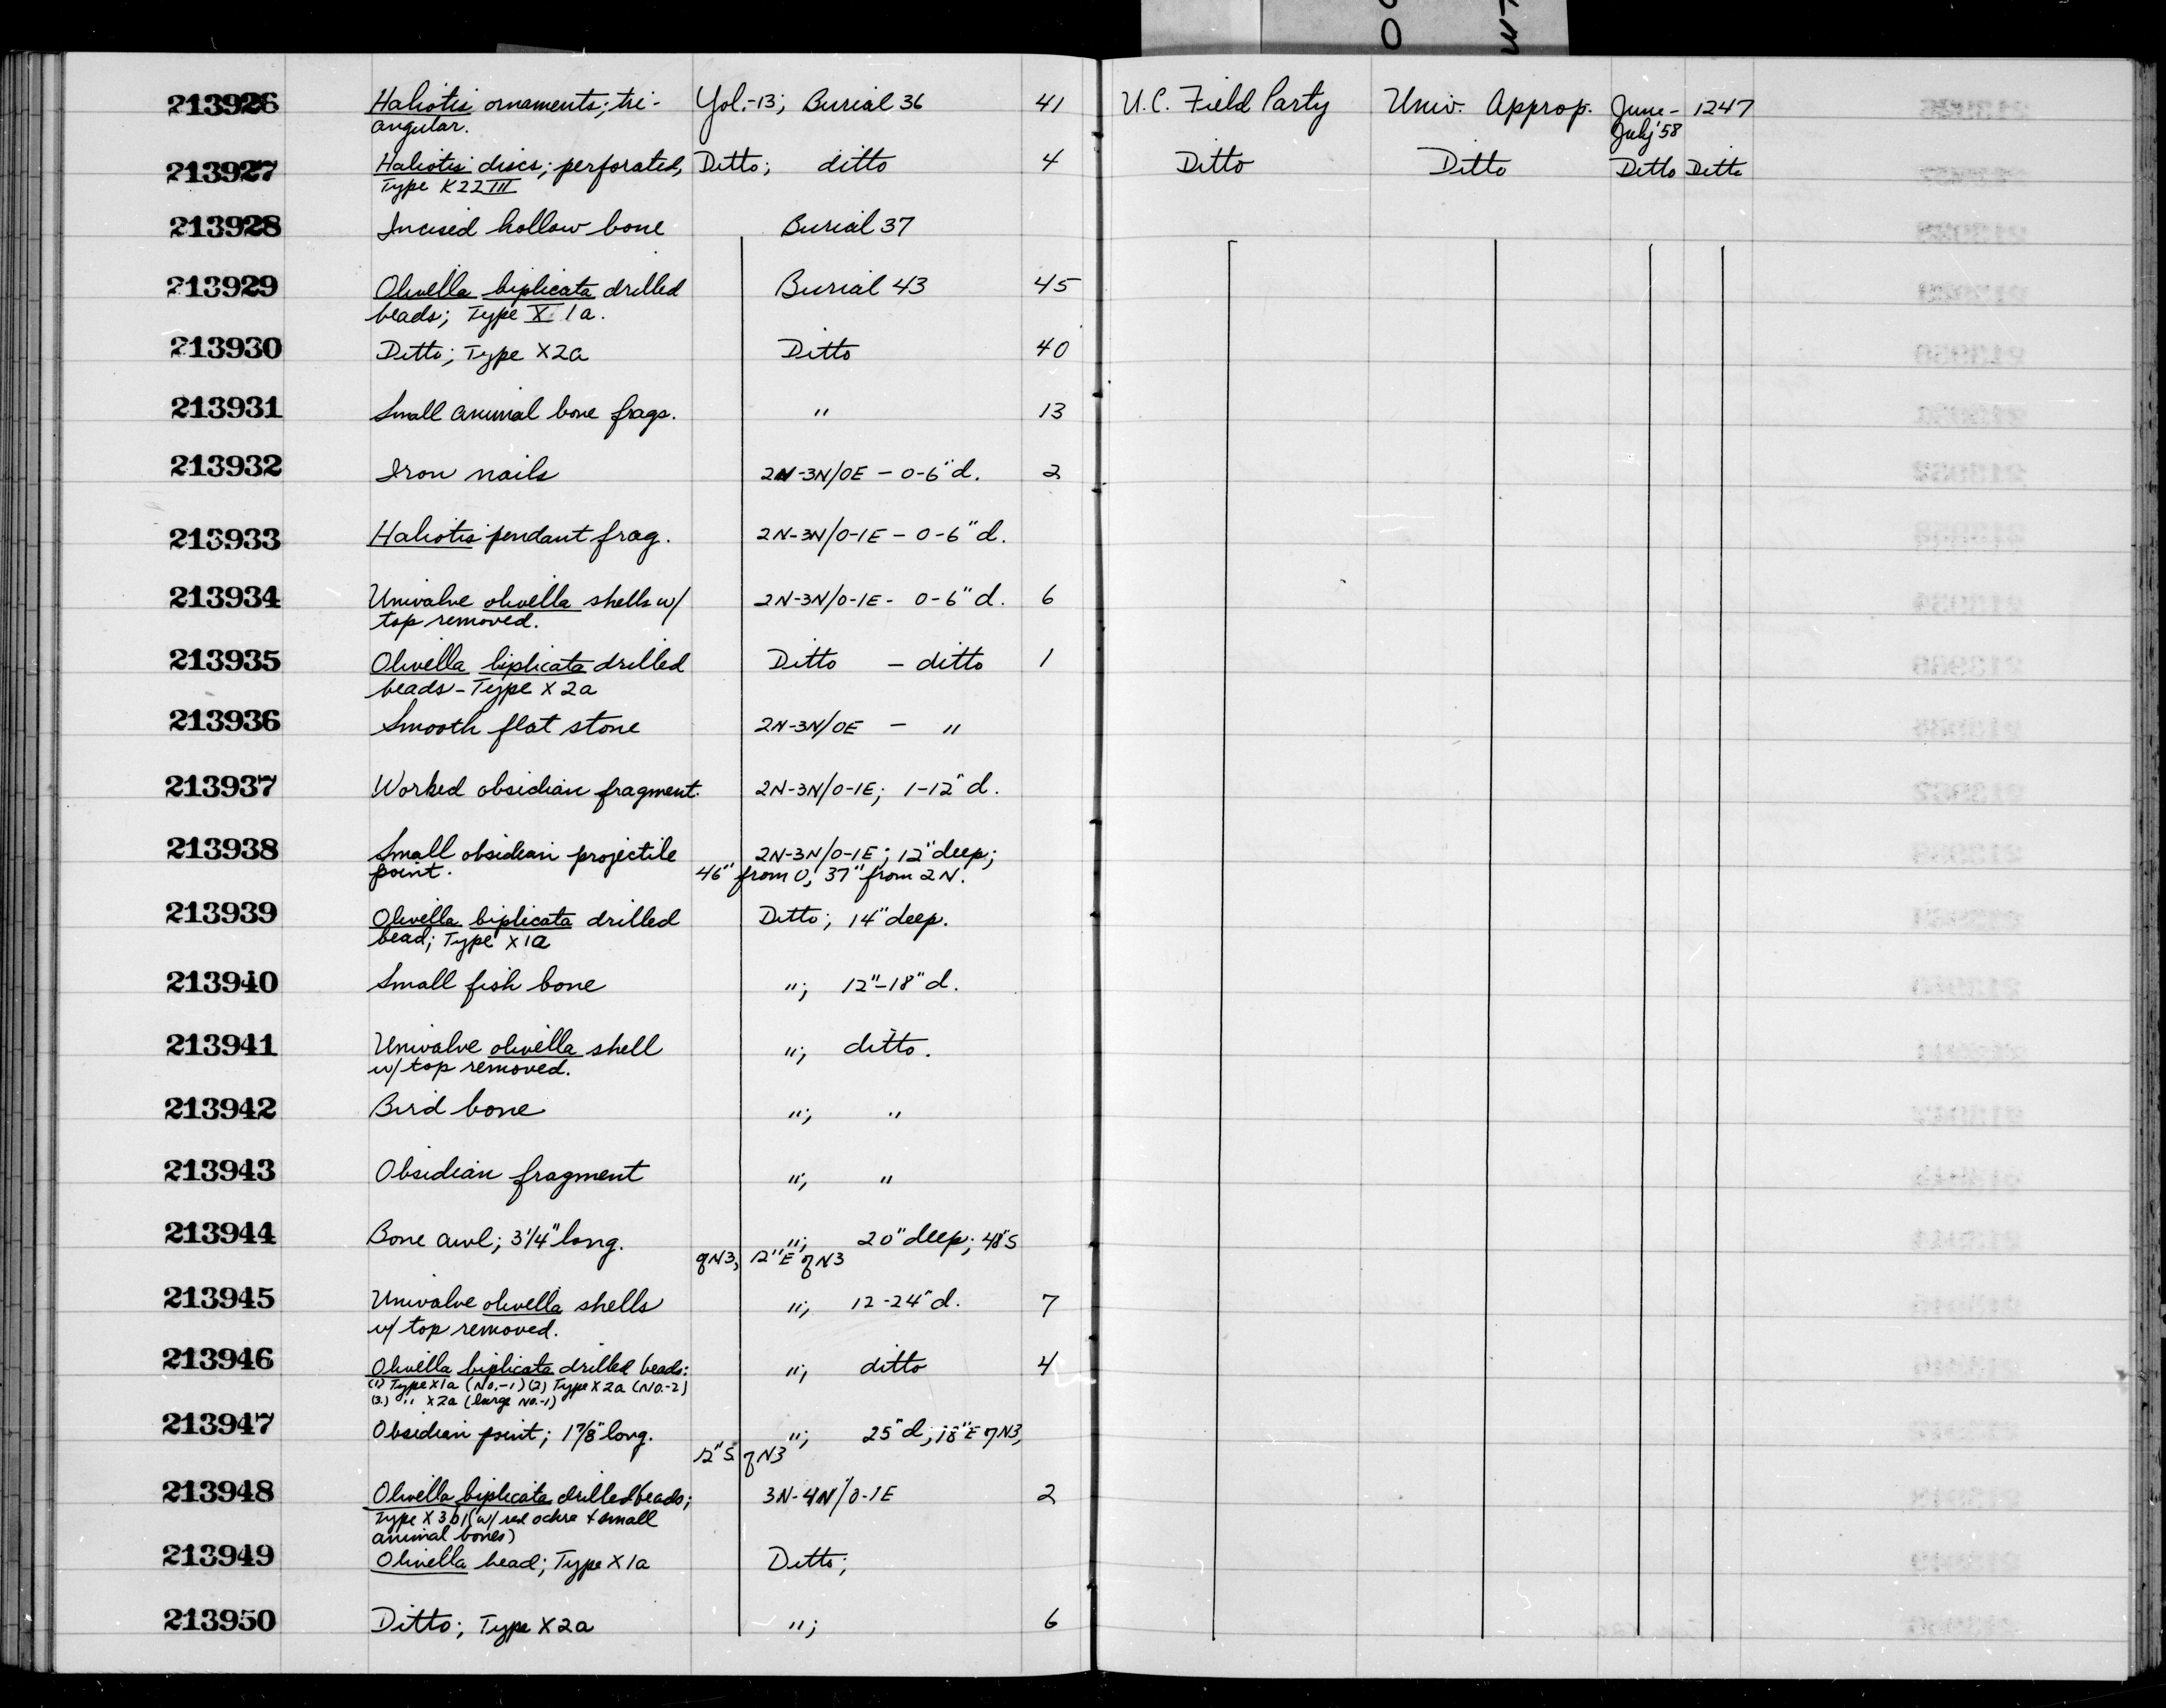 213926 Haliotis ornaments; tri- Yol.-13; Burial 36 41 U.C. Field Party Univ. Approp. June- 1247
angular. July '58
213927 Haliotis discs; perforated, Ditto; ditto 4 Ditto Ditto Ditto Ditto
Type K22III
213928 Incised hollow bone Burial 37
213929 Olivella biplicata drilled Burial 43 45
beads; Type X 1a.
213930 Ditto; Type X2a Ditto 40
213931 Small animal bone frags. " 13
213932 Iron nails 2N-3N/0E - 0-6" d. 2
213933 Haliotis pendant frag. 2N-3N/0-1E - 0-6" d.
213934 Univalve olivella shells w/ 2N-3N/0-1E - 0-6" d. 6
top removed.
213935 Olivella biplicata drilled Ditto - ditto 1
beads - Type X 2a
213936 Smooth flat stone 2N-3N/0E - "
213937 Worked obsidian fragment. 2N-3N/0-1E; 1-12" d.
213938 Small obsidian projectile 2N-3N/0-1E; 12" deep;
point. 46" from 0, 37" from 2N.
213939 Olivella biplicata drilled Ditto; 14" deep.
bead; Type X1a
213940 Small fish bone "; 12"-18" d.
213941 Univalve olivella shell "; ditto.
w/ top removed.
213942 Bird bone "; "
213943 Obsidian fragment "; "
213944 Bone awl; 3 1/4" long. "; 20" deep; 48" S
of N3, 12" E of N3
213945 Univalve olivella shells "; 12-24" d. 7
w/ top removed.
213946 Olivella biplicata drilled beads: "; ditto 4
(1) Type X1a (No.-1) (2) Type X2a (No.-2)
(3.) " X2a (large No.-1)
213947 Obsidian point; 1 7/8" long. "; 25" d; 18" E of N3,
12" S of N3
213948 Olivella biplicata drilled beads; 3N-4N/0-1E 2
Type X3b1 (w/ red ochre + small
animal bones)
213949 Olivella bead; Type X1a Ditto;
213950 Ditto; Type X2a "; 6